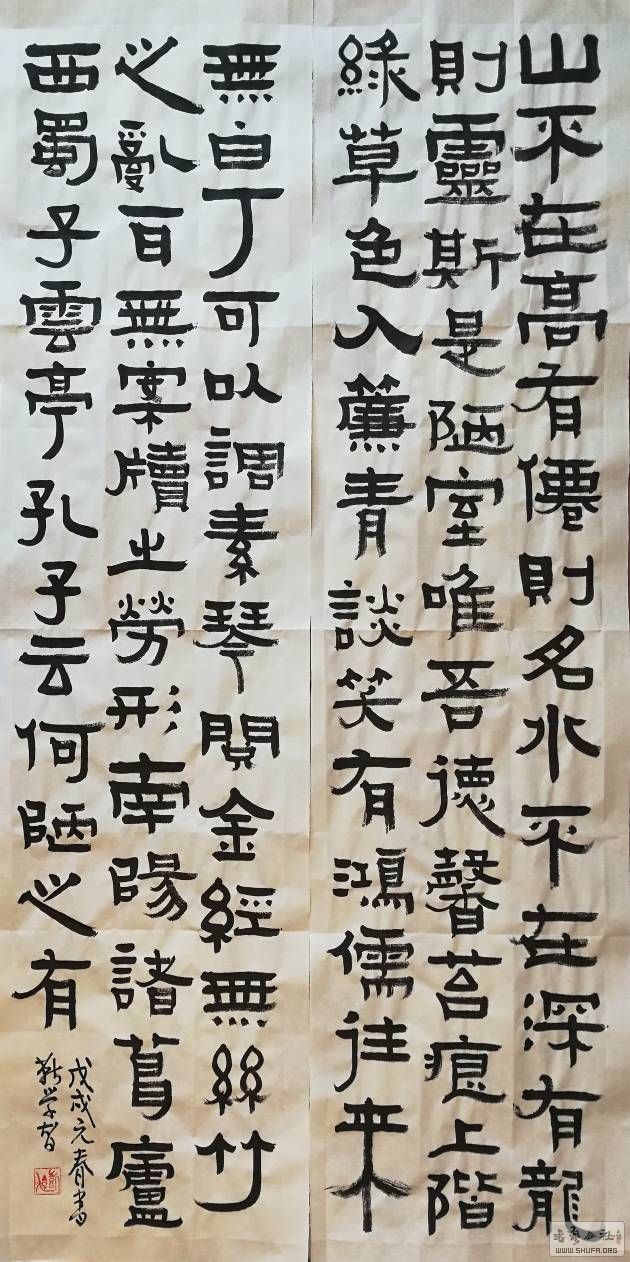 山不在高有僊則名水不在深有龍
則靈斯是陋室唯吾德馨苔痕上階
綠草色入簾青談笑有鴻儒往來
無白丁可以調素琴閱金經無絲竹
之亂百無案牘之勞形南陽諸葛廬
西蜀子雲亭孔子云何陋之有
戊戌元春書
靳学智
公社
WWW.SHUFA.ORG